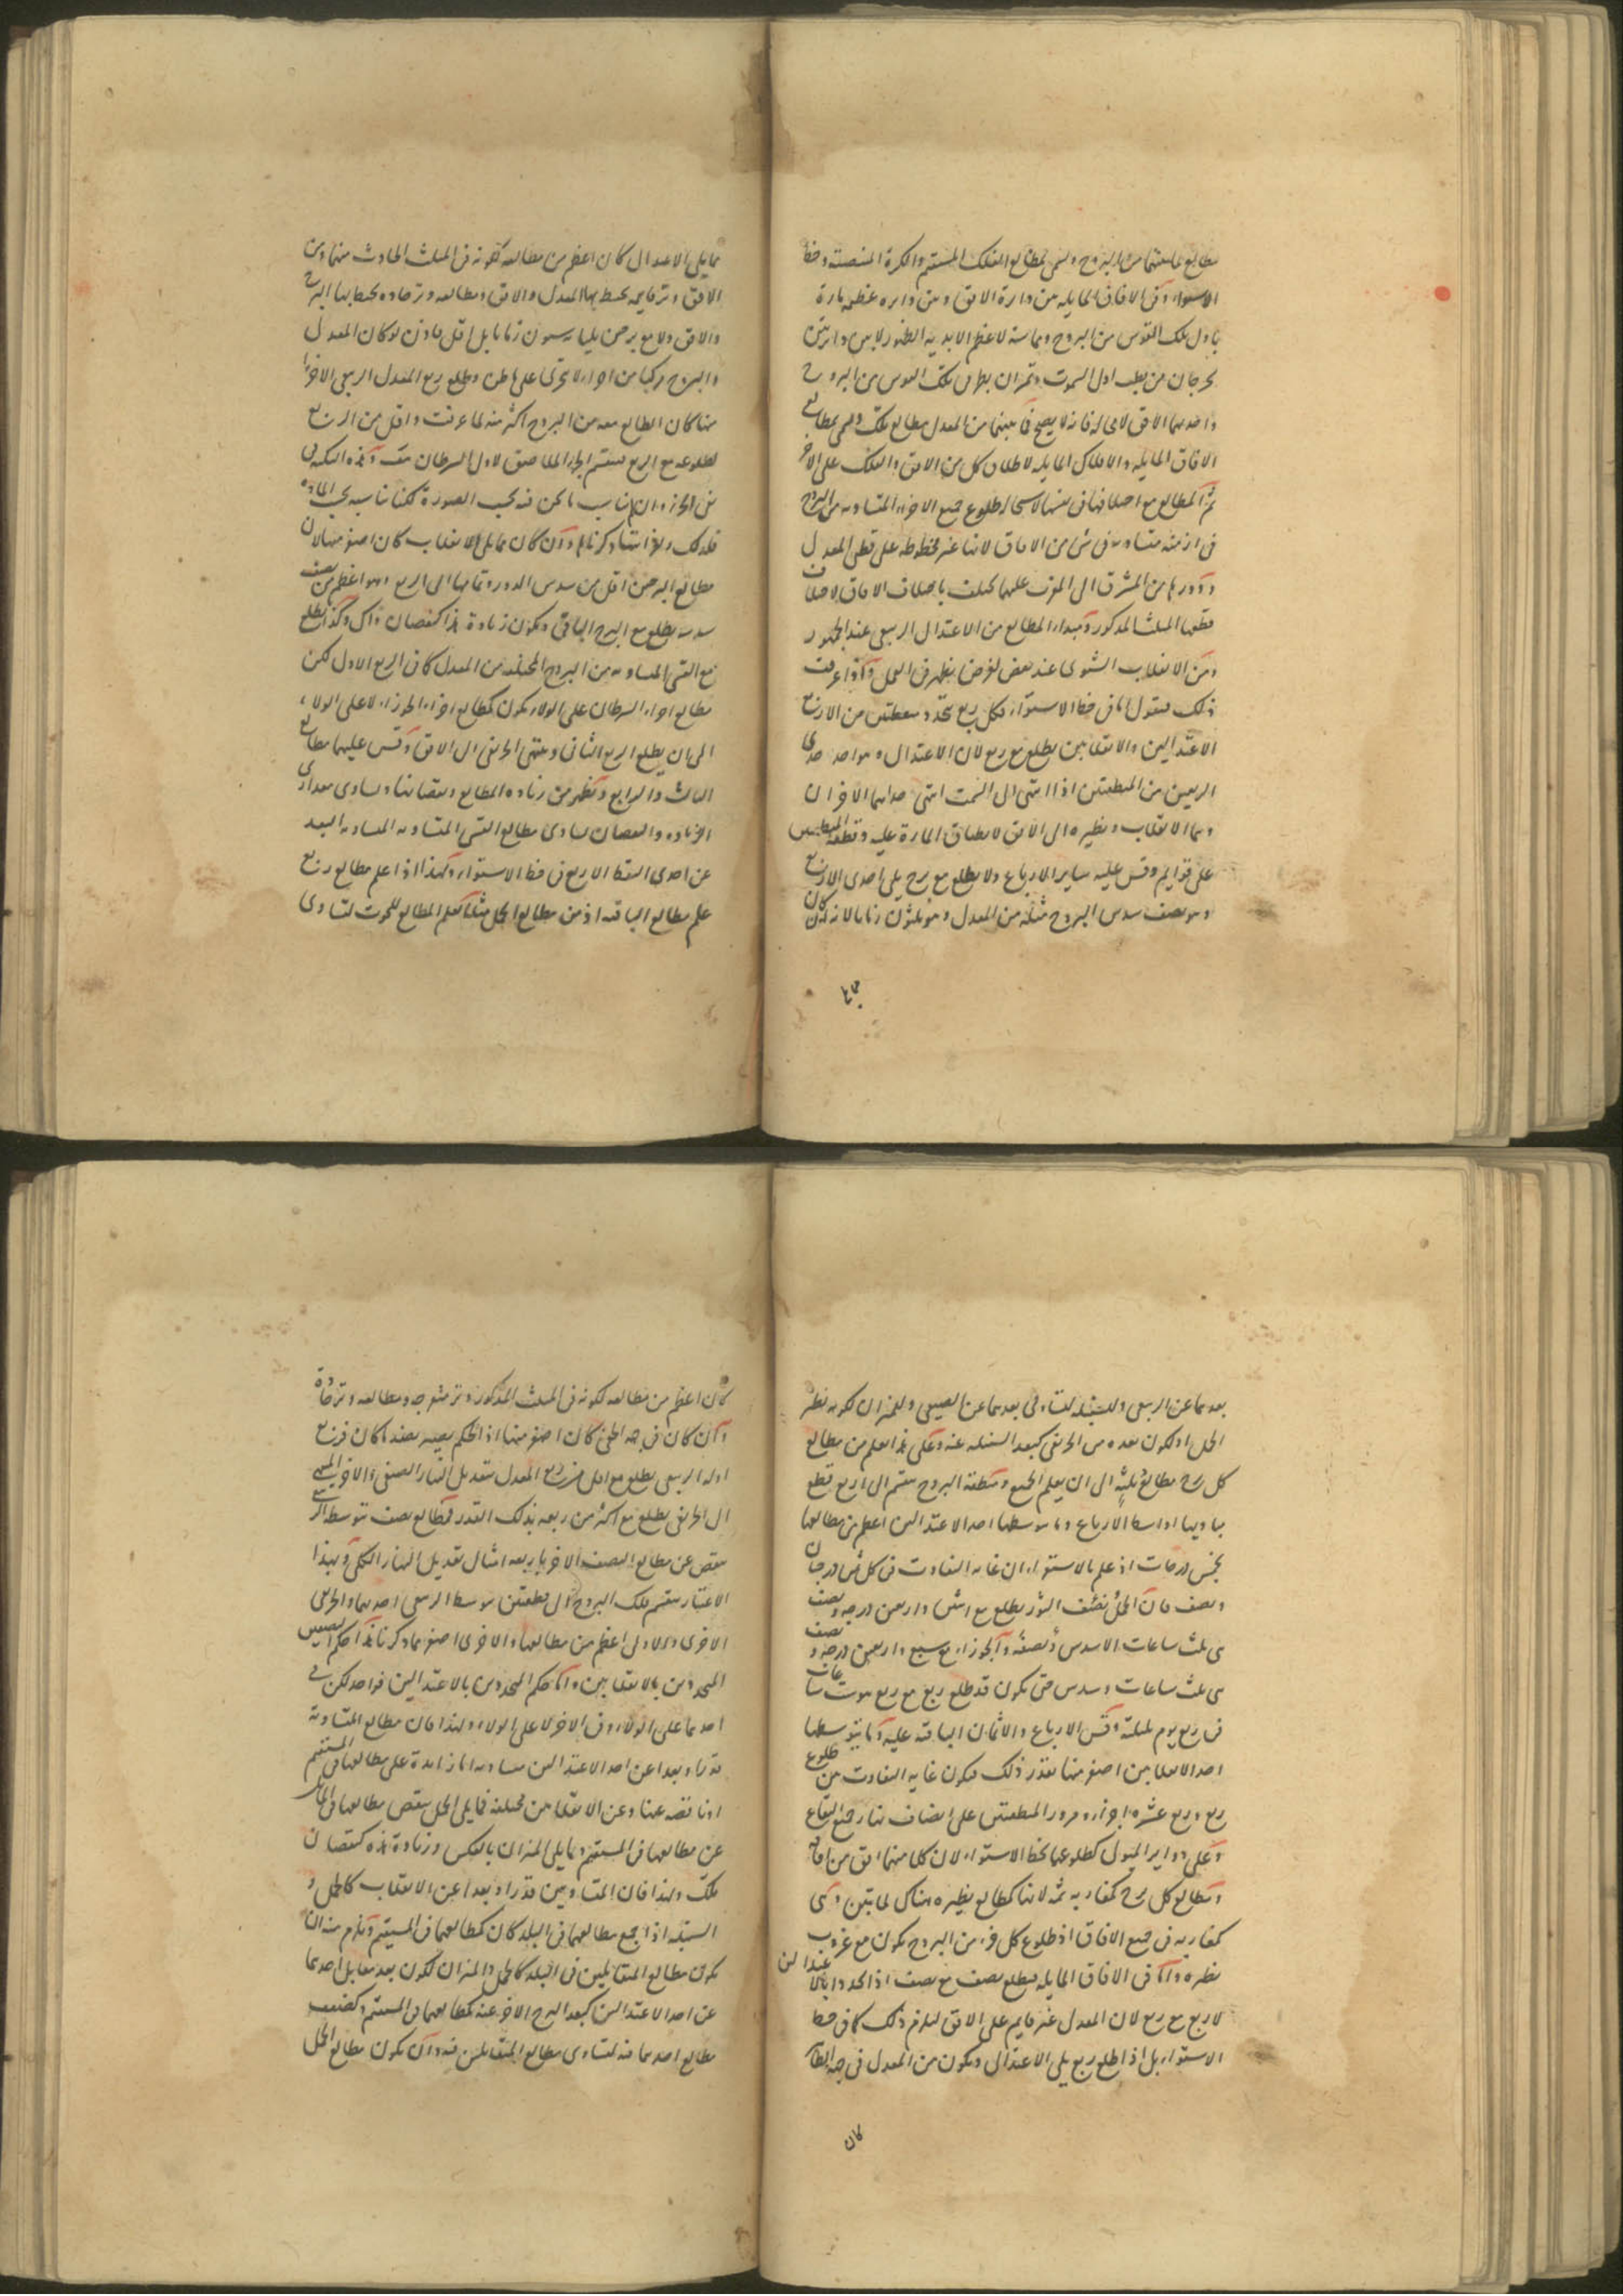 مطالع لما بينهما من البروج وتسمى بمطالع الفلك المستقيم والكرة المنتصبة وخط
الاستواء وفي الآفاق المايله من دايرة الافق ومن دايره عظيمه مارة
باول تلك القوس من البروج ومماسة لاعظم الابدية الظهور لا من دايرتين
تخرجان من قطب اول السموت وتمران بطرفى تلك القوس من البروج
واحديهما الافق لا محالة فانه لا يصح فما بينهما من المعدل مطالع تلك وتسمى بمطالع
الآفاق المايله والافلاك المايله لاطلاق كل من الافق والفلك على الآخر
ثم المطالع مع اختلافها فى نفسها لاستحالة طلوع جميع الاجزاء المتساويه من البروج
فى ازمنة متساويه فى شئ من الافاق لانها غير مخطوطة على قطبى المعدل
ودورها من المشرق الى المغرب عليهما تختلف باختلاف الافاق لاختلاف
قطعها المثلث المذكور ومبداء المطالع من الاعتدال الربيعى عند الجمهور
ومن الانقلاب الشتوى عند بعض لغرض يظهر فى العمل واذا عرفت
ذلك فنقول اما فى خط الاستواء فكل ربع يتحدد بنقطتين من الاربع
الاعتدالين والانقلابين يطلع مع ربع لان الاعتدال وهو احد حدى
الربعين من المنطقتين اذا انتهى الى السمت انتهى حداهما الاخران
وهما الانقلاب ونظيره الى الافق لانطباق المارة عليه وقطعها المنطقتين
على قوايم وقس عليه ساير الارباع ولا يطلع مع برج يلى احدى الاربع
وهو نصف سدس البروج مثله من المعدل وهو ثلثون زمانا لانه ان كان
مما يلى
مما يلى الاعتدال كان اعظم من مطالعه لكونه فى المثلث الحادث منهما ومن
الافق وتر قايمه يحيط بها المعدل والافق ومطالعه وتر حاده يحيط بها البرج
والافق ولا مع برجين يليانه ستون زمانا بل اقل
والبروج مركبا من اجزاء لا تتجزى وطلع ربع المعدل الربيعى الاخر
منها كان الطالع معه من البروج اكثر منه لما عرفت واقل من الربع
لطلوعه مع الربع فينقسم الجزء الملاصق لاول السرطان
فى الجزء وان
فلذلك ذكرناه وان كان مما يلى الانقلاب كان اصغر منها لان
مطالع البرجين اقل من سدس الدور وتمامها الى الربع وهو اعظم من نصف
سدسه يطلع مع البرج الباقى وتكون زيادة هذا كنقصان ذاك وكذا يطلع
مع القسى المتساويه من البروج المختلفه من المعدل كما فى الربع الاول لكن
مطالع اجزاء السرطان على الولاء تكون كمطالع اجزاء الجوزاء لا على الولاء
الى ان يطلع الربع الثانى وينتهى الخريفى الى الافق وقس عليهما مطالع
الثالث والرابع ويظهر من زياده المطالع ونقصانها وتساوى مقدارى
الزياده والنقصان تساوى مطالع القسى المتساويه المتساويه البعد
عن احدى النقط الاربع فى خط الاستواء ولهذا اذا علم مطالع ربع
علم مطالع الباقيه اذ من مطالع الحمل مثلا تعلم المطالع للحوت لتساوى
بعدهما عن الربيعى وللسنبله لتساوى بعدهما عن الصيفى وللميزان لكونه نظير
الحمل او لكون بعده من الخريفى كبعد السنبله عنه وعلى هذا يعلم من مطالع
كل برج مطالع ثلثة الى ان يعلم الجميع ومنطقة البروج تنقسم الى اربع قطع
تساويها اواسط الارباع وما يتوسطها احد الاعتدالين اعظم من مطالعها
بخمس درجات اذ علم بالاستقراء ان غايه التفاوت فى كل ثمن درجتان
ونصف فان الحمل ونصف الثور يطلع مع اثنين واربعين درجه ونصف
هى ثلث ساعات الا سدس ونصفه والجوزاء مع سبع واربعين درجه ونصف
هى ثلث ساعات وسدس حتى يكون قد طلع ربع مع ربع هو ست ساعات
فى ربع يوم بليلته وقس الارباع والاثمان الباقيه عليه وما يتوسطها
احد الانقلابين اصغر منها بقدر ذلك فيكون غايه التفاوت من طلوع
ربع وربع عشرة اجزاء ومرور المنطقتين على انصاف نهار جميع البقاع
وعلى دواير الميول كطلوعهما بخط الاستواء لان كلا منهما افق من آفاقه
ومطالع كل برج كمغاربه ثمه لانها كمطالع نظيره هناك لما تبين وهى
كمغاربه فى جميع الافاق اذ طلوع كل جزء من البروج يكون مع غروب
نظيره واما فى الافاق المايله فيطلع نصف مع نصف اذا تحددا بالاعتدالين
لا ربع مع ربع لان المعدل غير قايم على الافق ليلزم ذلك كما فى خط
الاستواء بل اذا طلع ربع يلى الاعتدالى ويكون من المعدل فى جهة الظاهر
كان
كان اعظم من مطالعه لكونه فى المثلث المذكور وتر منفرجه ومطالعه وتر حادة
وان كان فى جهة الخفى كان اصغر منها اذ الحكم يصير بضد ما كان فربع
اوله الربيعى يطلع مع اقل من ربع المعدل بتعديل النهار الصيفى والاخر المنتهى
الى الخريفى يطلع مع اكثر من ربعه بذلك القدر فمطالع نصف توسطه الربيعى
تنقص عن مطالع النصف الاخر باربعه امثال تعديل النهار الكلى وبهذا
الاعتبار ينقسم فلك البروج الى قطعتين يتوسط الربيعى احديهما والخريفى
الاخرى والاولى اعظم من مطالعها والاخرى اصغر مما ذكرنا هذا حكم النصفين
المحدودين بالانقلابين واما حكم المحدودين بالاعتدالين فواحد لكن فى
احدهما على الولاء وفى الاخر لا على الولاء ولهذا فان مطالع المتساويه
قدرا وبعدا عن احد الاعتدالين متساويه اما زايدة على مطالعها فى المستقيم
او ناقصه عنها وعن الانقلابين مختلفه فما يلى الحمل ينقص مطالعها فى المايل
عن مطالعها فى المستقيم وما يلى الميزان بالعكس وزيادة هذه كنقصان
تلك ولهذا فان المتساويين قدرا وبعدا عن الانقلاب كالحمل و
السنبله اذا جمع مطالعهما فى البلد كان كمطالعهما فى المستقيم ويلزم منه ان
يكون مطالع المتقابلين فى البلد كالحمل والميزان لكون بعد مقابل احدهما
عن احد الاعتدالين كبعد البرج الاخر عنه كمطالعهما فى المستقيم وكضعف
مطالع احدهما فيه لتساوى مطالع المتقابلين فيه وان يكون مطالع الحمل